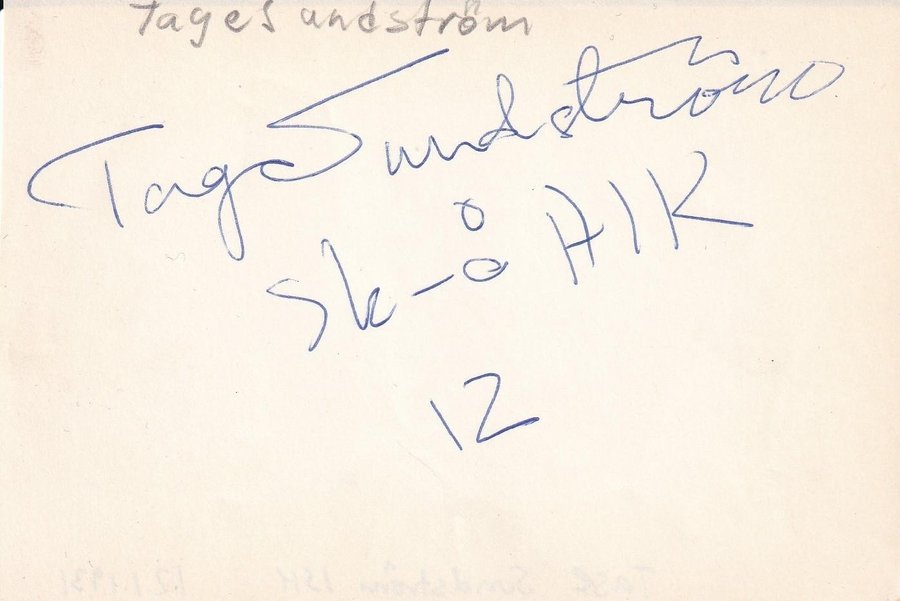 Tage Sundström
Tage Sundström
SK-Å AIK
12
Tage Sundström